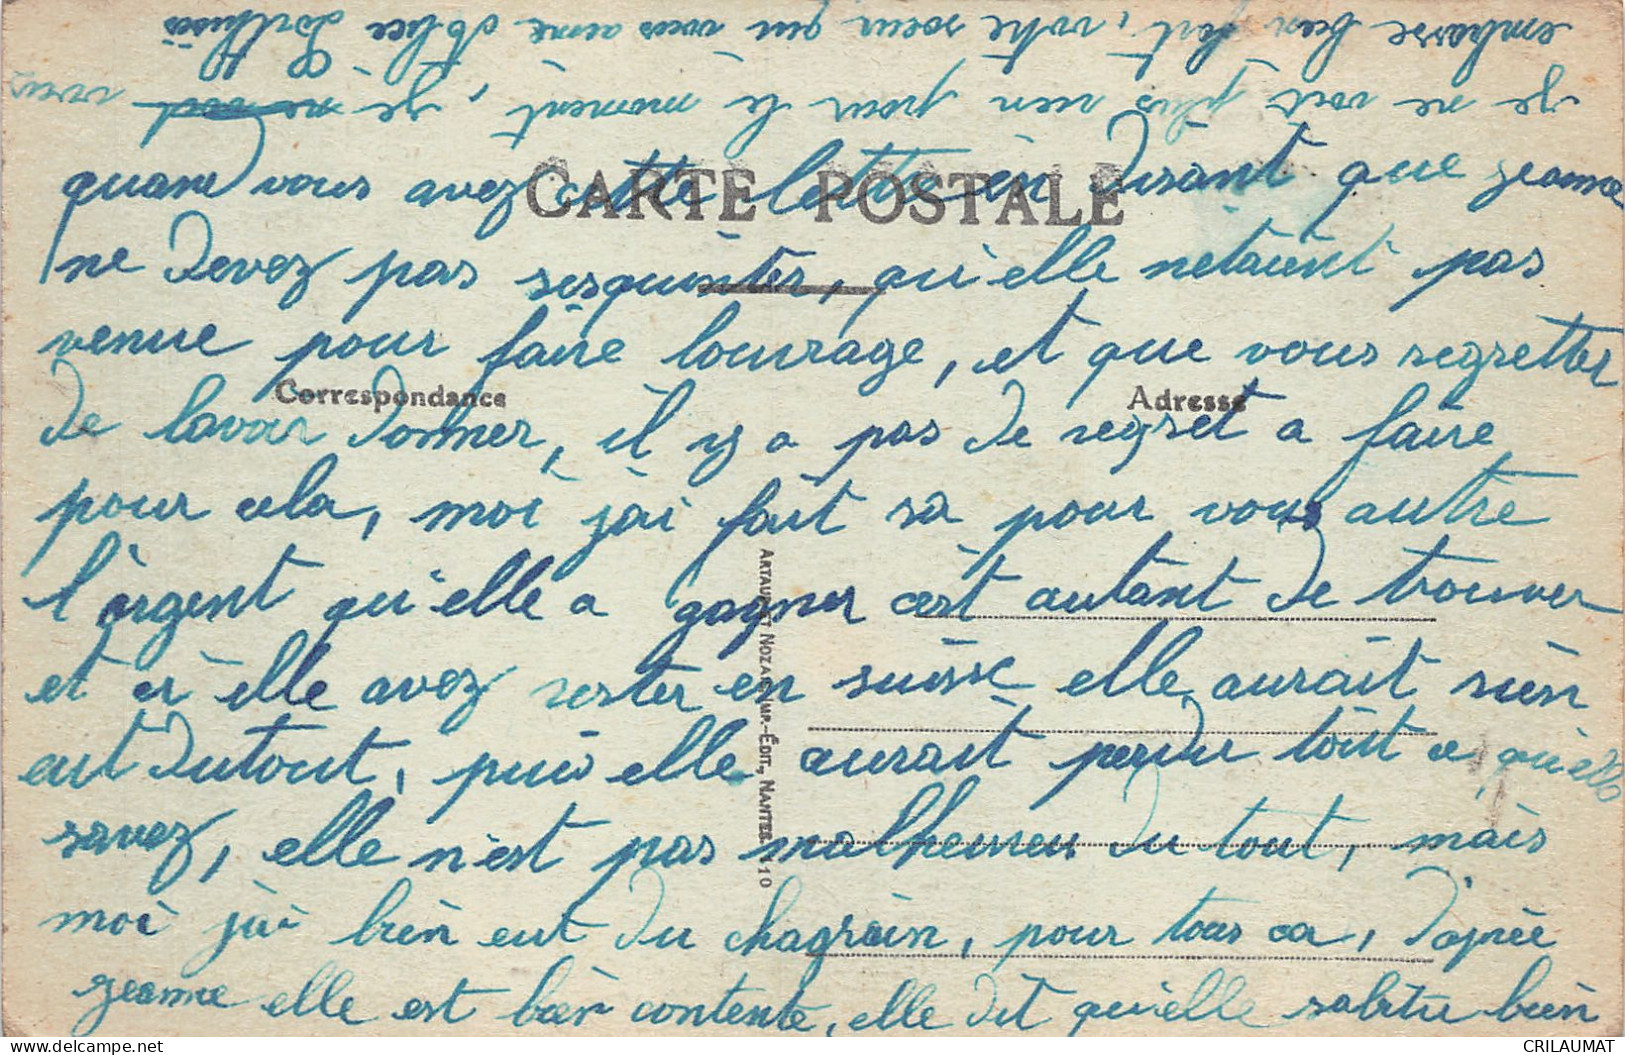 CARTE POSTALE
Correspondance
Adresse
ARTAUD ET NOZAIS IMP.-ÉDIT., NANTES 110
quand vous avez cette lettre en disant que jeanne
ne devez pas sesquinter, qu'elle netaient pas
venue pour faire louvrage, et que vous regretter
de lavoir donner, il y a pas de regret a faire
pour cela, moi j'ai fait sa pour vous autre
l'argent qu'elle a gagner cest autant de trouver
et si elle avez rester en suisse elle aurait rien
eut dutout, puis elle aurait perdu tout ce qu'elle
savez, elle n'est pas malheureu du tout, mais
moi j'ai bien eut du chagrain, pour tous ca, d'aprèe
jeanne elle est bien contente, elle dit qu'elle sabitu bien
je ne voit plus rien pour le moment, je vous
embrasse bien fort, votre soeur qui vous aime
CRILAUMAT